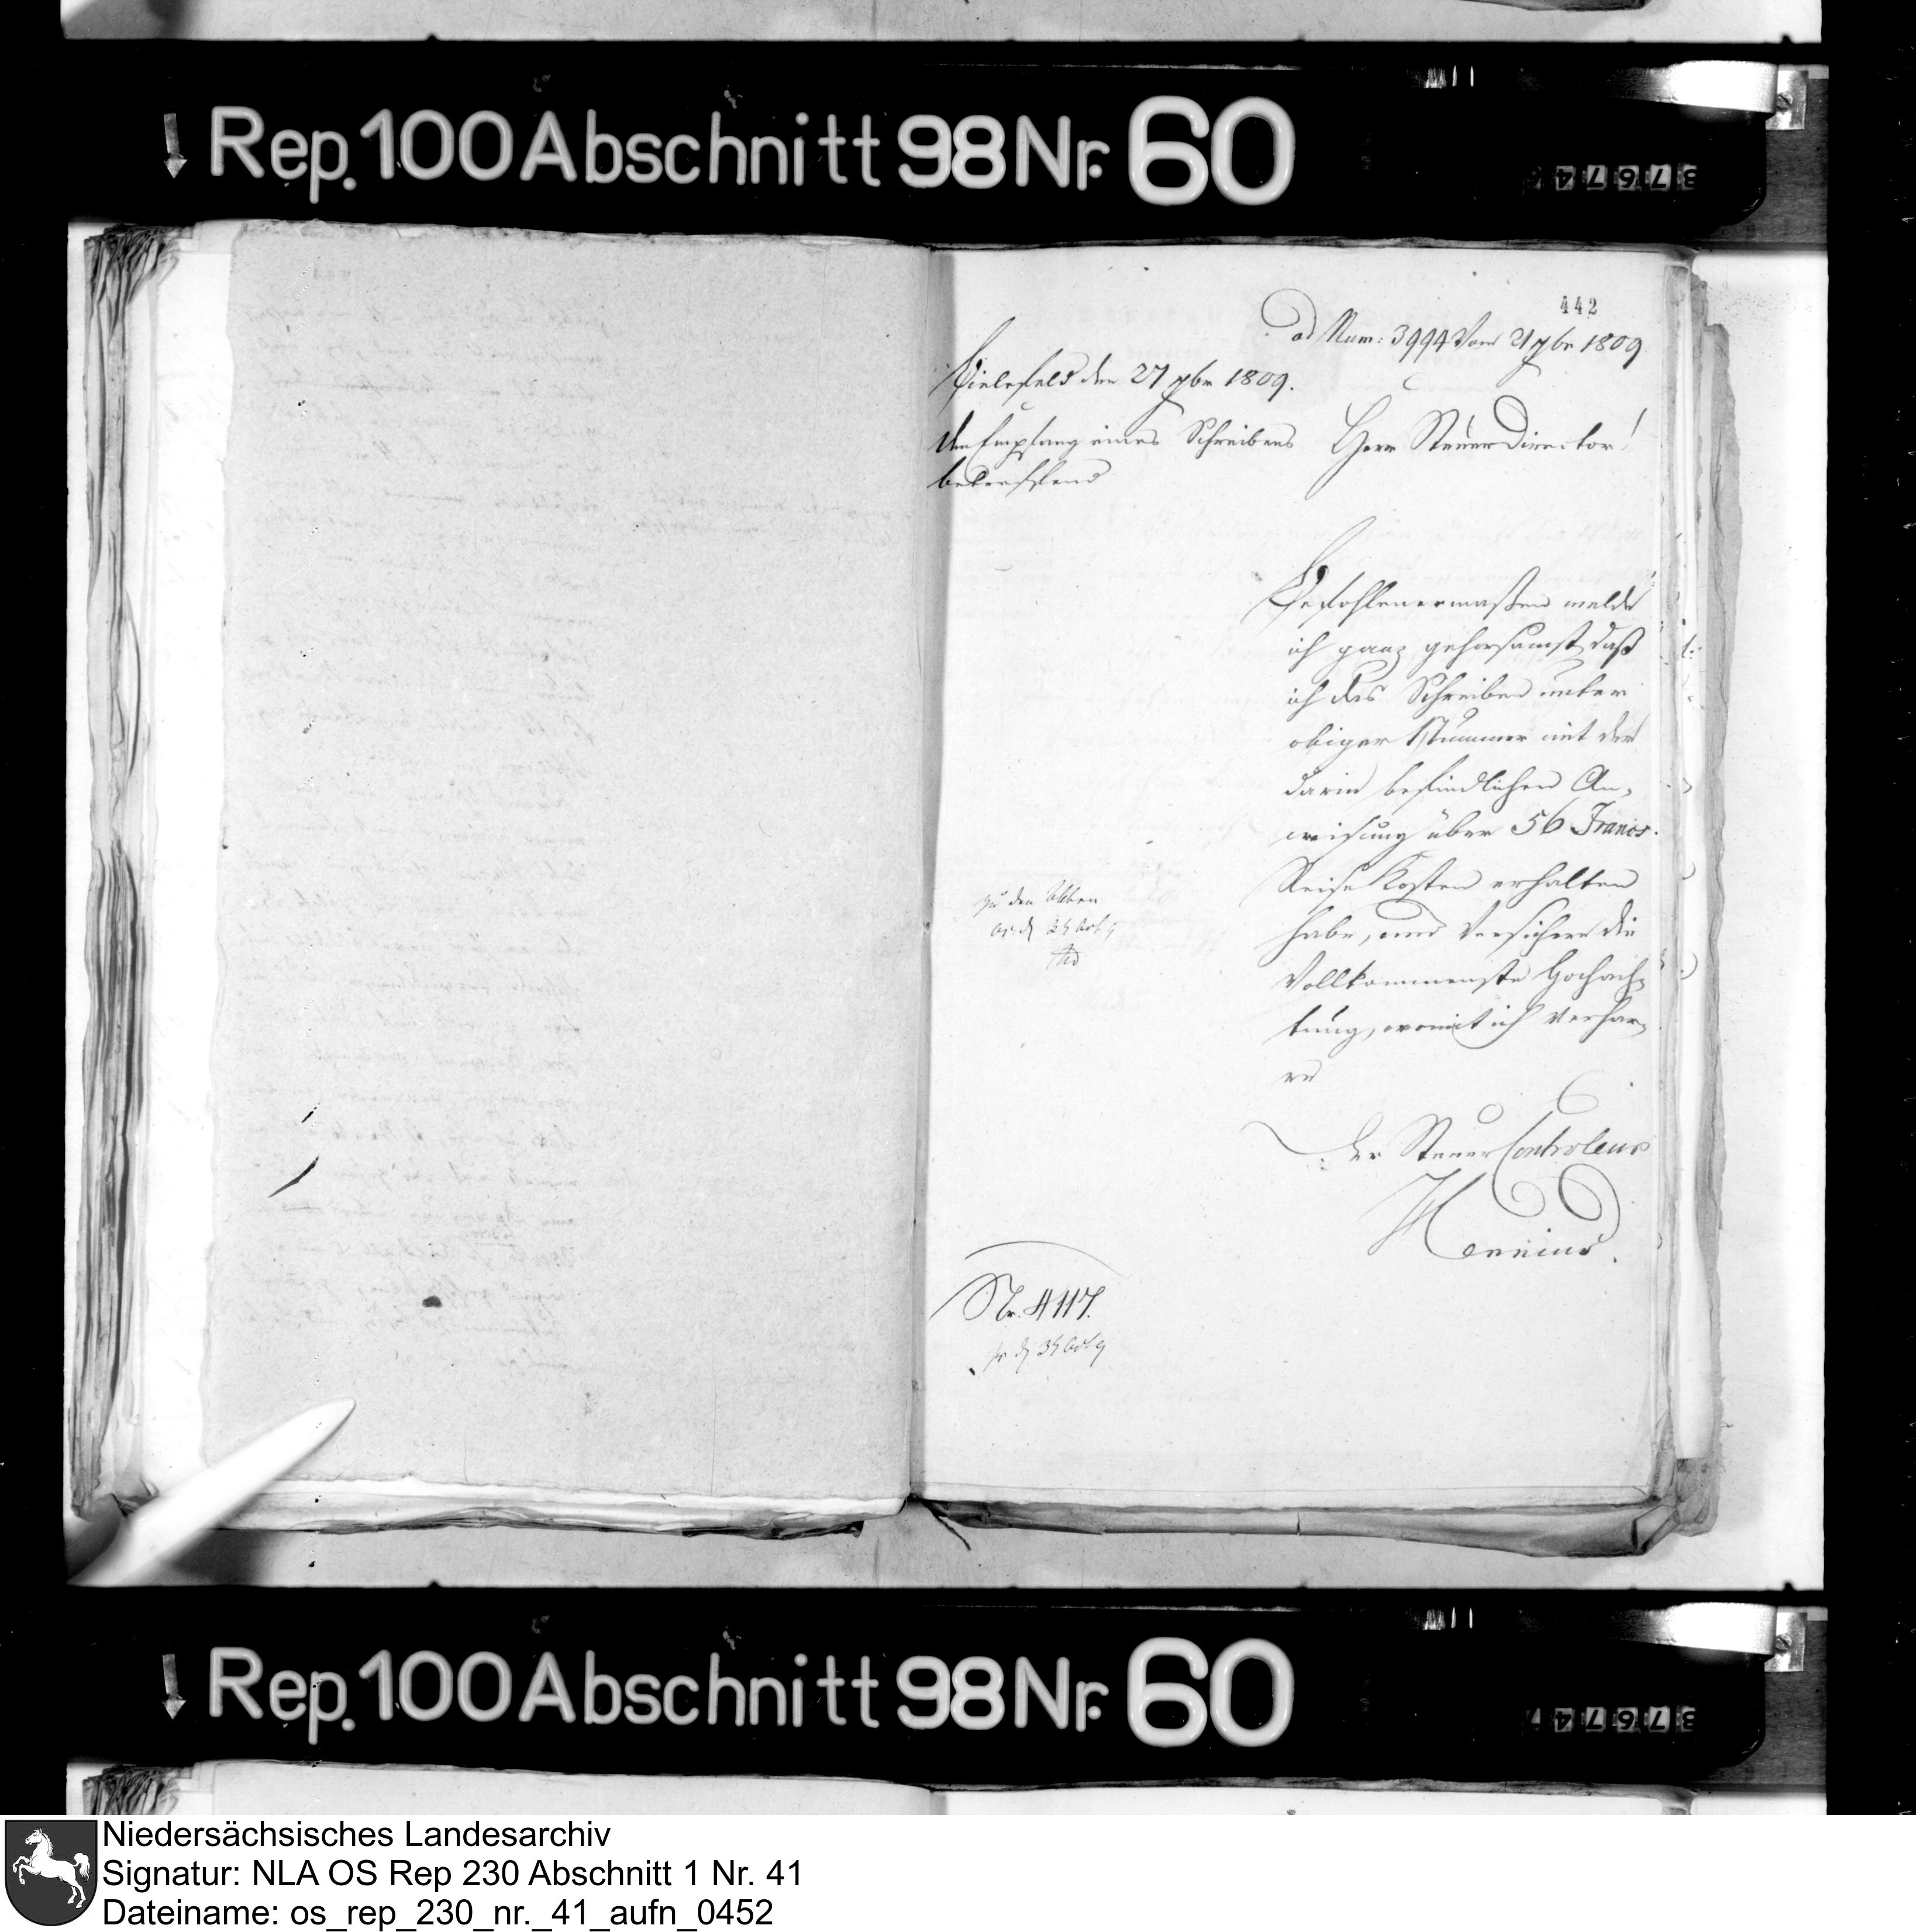 Rep. 100 Abschnitt 98 Nr. 60
442
ad Num: 3994 Vom 21 7br 1809
Bielefeld den 27 7br 1809.
Den Empfang eines Schreibens
betreffend
Herr Steuer Director!
Befohlenermaßen melde
ich ganz gehorsamst, daß
ich das Schreiben unter
obiger Nummer mit der
darin befindlichen An,
weisung über 56 Francs.
Reise Kosten erhalten
habe, und Versichere die
Vollkommenste Hochach,
tung, womit ich verhar,
re
Der Steuer Controleur
Hennius.
zu den Akten
Nr. 4117.
Rep. 100 Abschnitt 98 Nr. 60
Niedersächsisches Landesarchiv
Signatur: NLA OS Rep 230 Abschnitt 1 Nr. 41
Dateiname: os_rep_230_nr._41_aufn_0452